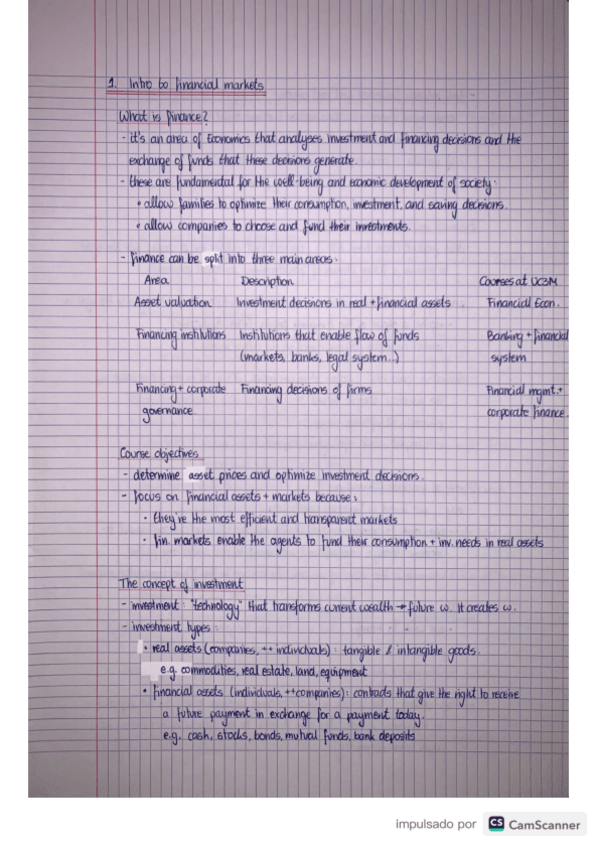 1. Intro to financial markets
What is finance?
- it's an area of Economics that analyses investment and financing decisions and the
exchange of funds that these decisions generate.
- these are fundamental for the well-being and economic development of society:
• allow families to optimize their consumption, investment, and saving decisions.
• allow companies to choose and fund their investments.
- finance can be split into three main areas:
Area Description Courses at UC3M
Asset valuation Investment decisions in real + financial assets Financial Econ.
Financing institutions Institutions that enable flow of funds Banking + financial
(markets, banks, legal system...) system
Financing + corporate Financing decisions of firms Financial mgmt. +
governance corporate finance
Course objectives
- determine asset prices and optimize investment decisions.
- focus on financial assets + markets because:
• they're the most efficient and transparent markets
• fin. markets enable the agents to fund their consumption + inv. needs in real assets
The concept of investment
- investment: "technology" that transforms current wealth → future w. it creates w.
- investment types:
• real assets (companies, ++ individuals): tangible / intangible goods.
e.g. commodities, real estate, land, equipment
• financial assets (individuals, ++companies): contracts that give the right to receive
a future payment in exchange for a payment today.
e.g. cash, stocks, bonds, mutual funds, bank deposits
impulsado por CS CamScanner